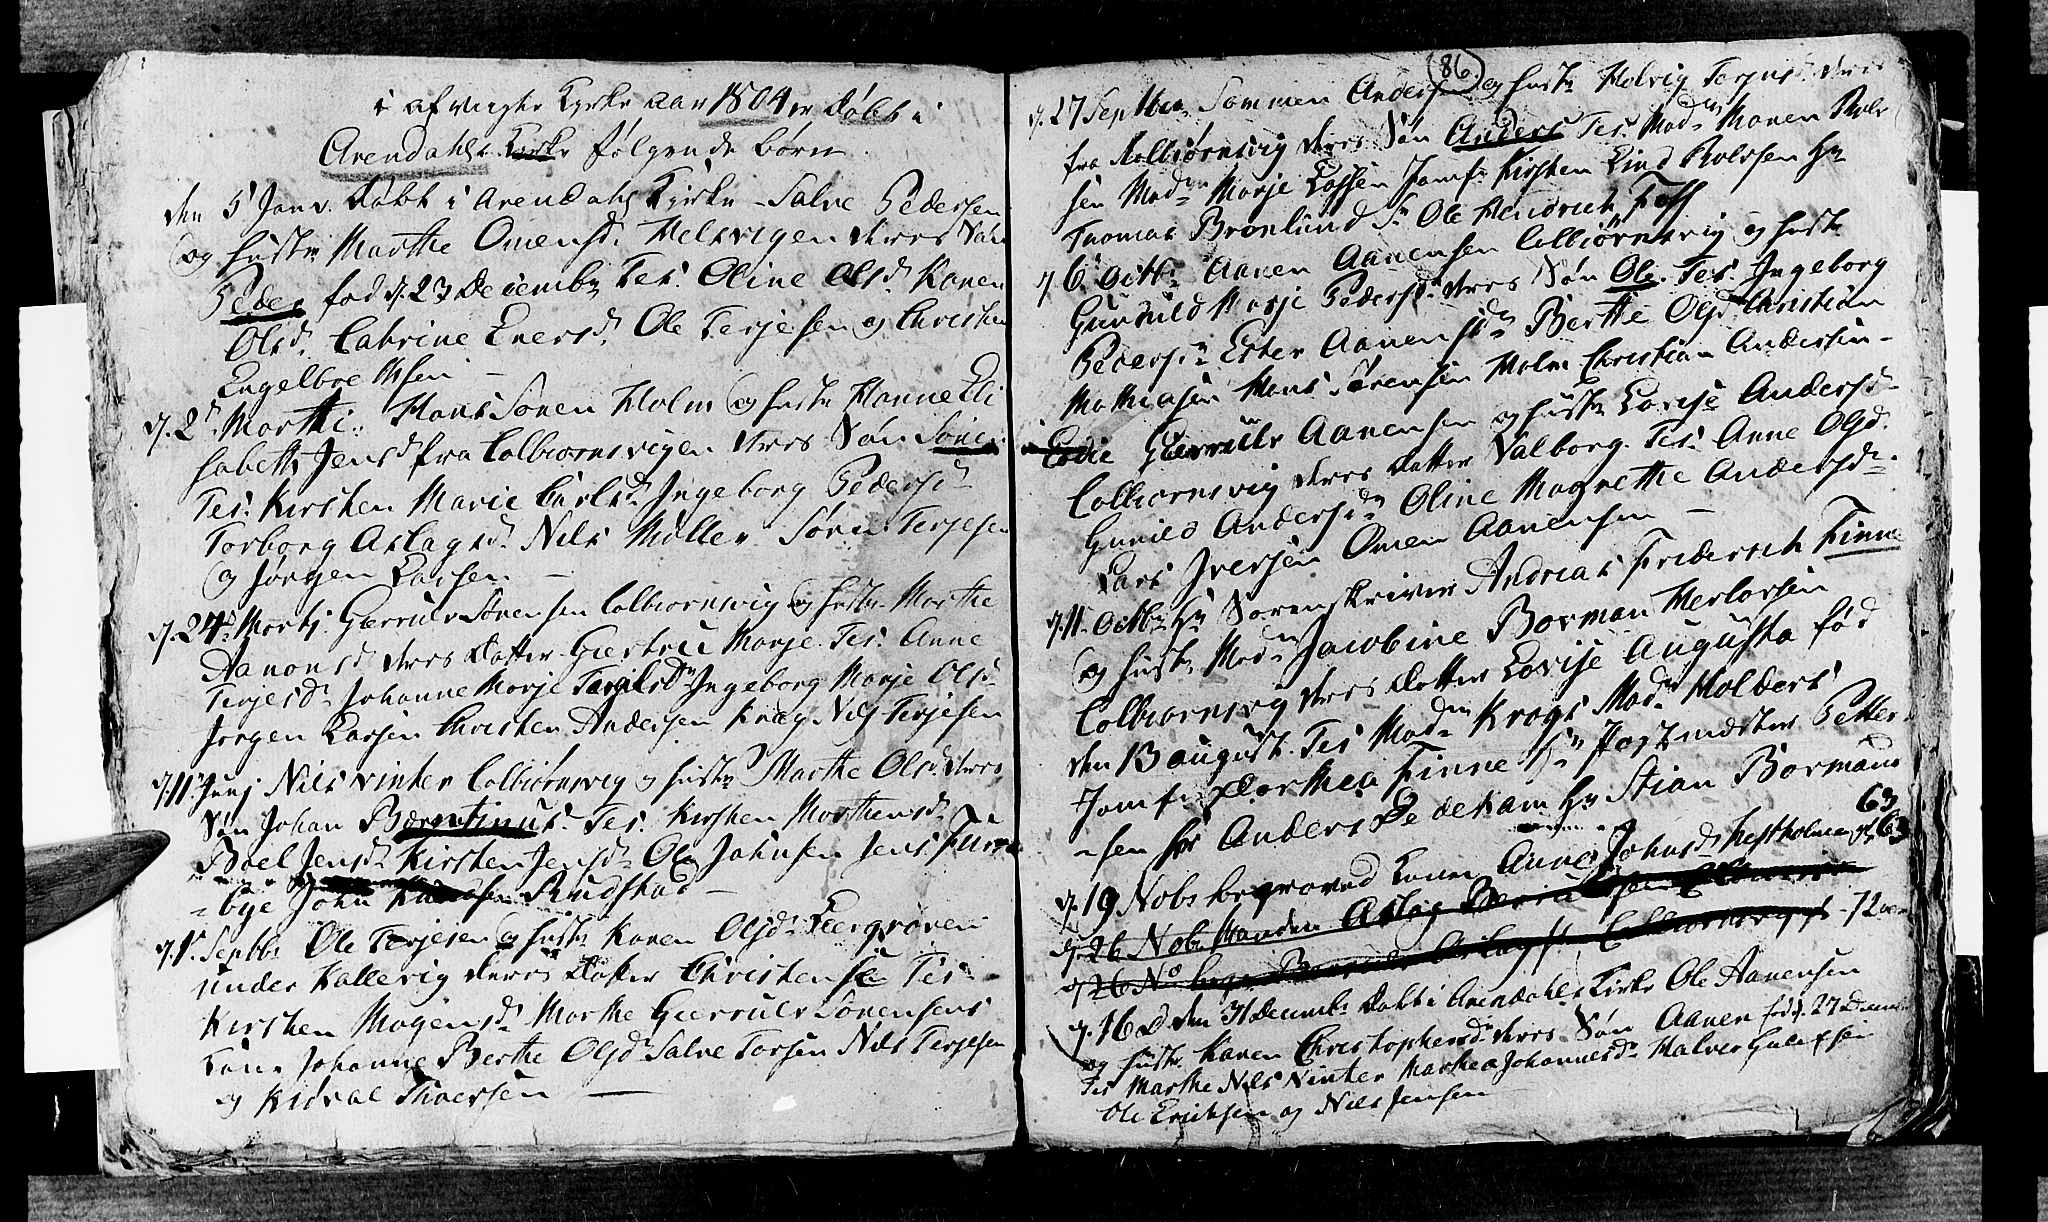 i afvigte Kirke aar 1804 er døbt i
Arendahls Kirke følgende børn
den 5 Janv. Døbt i Arendahls Kirke Salve Pedersen
og hustr Marthe Omensd. Helsvigen deres Søn
Peder fød d. 23 Decembr Tes: Oline Olsd. Karen
Olsd. Catrine Eversd. Ole Terjesen og Christen
Engelbrethsen –
d. 2d. Marthi: Hans Søren Holm og hustr Hanne Eli
sabeth Jensd. fra Colbiornsvigen deres Søn
Tes: Kirsten Marie Carlsd. Ingeborg Pedersd.
Torborg Aslagsd. Nils Møller Søren Terjesen
og Jørgen Larsen –
d. 24d. Marts Gierruls Sørensen Colbiornsvig og hustr Marthe
Aanonsd. deres Datter Giertru Marje Tes: Anne
Terjesd. Johanne Marje Targilsd. Ingeborg Marje Olsd.
Jorgen Larsen Christen Andersen Krag Nils Terjesen
d. 11 Junj Nils Vinter Colbiørnsvig og hustr Marthe Olsd. deres
Søn Johan Bærentinus. Tes: Kirsten Morthensd.
Boel Jensd. Kirsten Jensd. Ole Johnsen Jens
bye John Rudstad –
d. 1. Septbr Ole Terjesen og hustr Karen Olsd. Leergraven
under Kallevig deres Datter Christense Tes
Kirsten Mogensd. Marthe Gierruls Sørensens
Kone Johanne Berthe Olsd. Salve Torsen Nils Terjesen
og Kidval Thoersen –
86
d. 27 Septbr Sammen Andersen og hustr Helvig Terjusd. deres
fra Kolbiørnsvig deres Søn Anders Tes: Madm Maren Roles
sen Madm Marje Lassen Jomfr Kirsten Lind Rolessen Hr
Thomas Bronlund Sr Ole Hendrich Foss
d. 6 Octbr Aanen Aanensen Colbiørnsvig og hustr
Gunvuld Marje Pedersd. deres Søn Ole. Tes: Ingeborg
Pedersd. Ester Aanensd. Berthe Olsd. Christian
Mathiasen Hans Sørensen Holm Christian Andersen –
Gierruls Aanensen og hustr Lovise Andersd.
Colbiornsvig deres Datter Valborg. Tes: Anne Olsd.
Gunild Andersd. Oline Magrethe Andersd.
Lars Iversen Omen Aanensen –
d. 11 Octbr Hr Sorenskriver Andreas Frederich Finne
og hustr Madm Jacobine Borman Herlofsen
Colbiornsvig deres Datter Lovise Augusta fød
den 13 august. Tes Madm Krogs Madm Holbers
Jomfr Dorthea Finne Hr Postmester Petter
sen Hr Anders Dedekam Hr Stian Bormand
d. 19 Nobr begraved Konen Anne Johnsd. Hestholmen 63
d. 26 Nobr Manden Aslag
d. 26 No Aslag Colbiornsvig 72
d. 16 D den 31 Decembr Døbt i Arendahls Kirke Ole Aanensen
og hustr Karen Christophersd. deres Søn Aanen fød d. 27 Decembr
Tes Marthe Nils Vinter Marthea Johannesd. Halver Gulefsen
Ole Ericksen og Nils Jensen